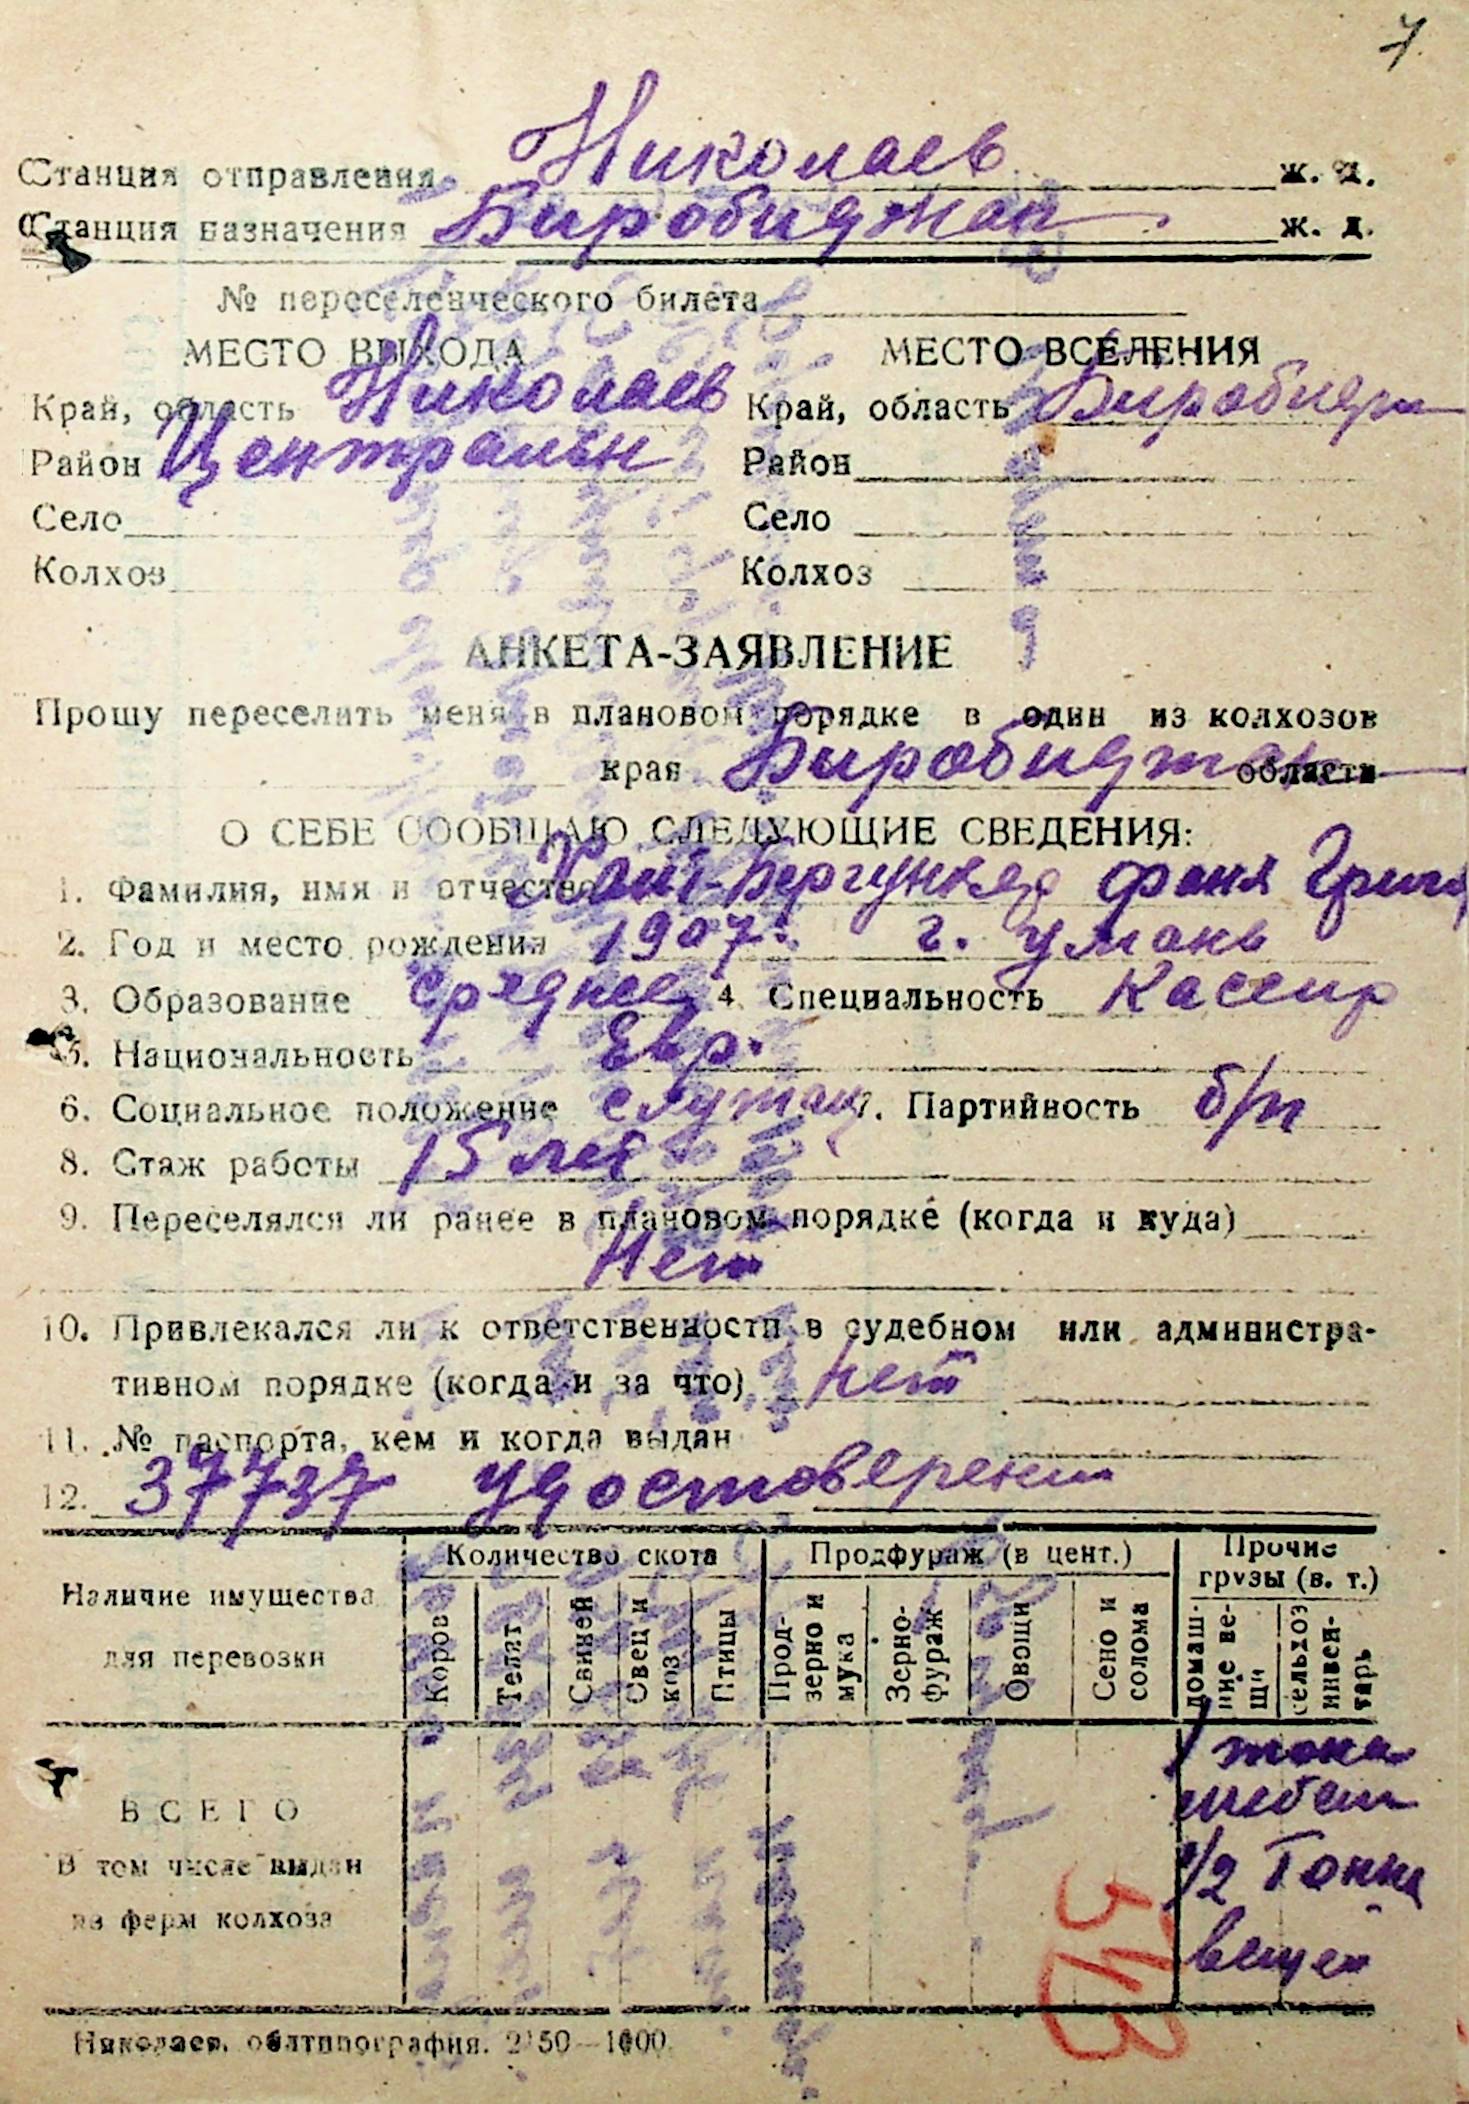 7
Станция отправления Николаев ж. д.
Станция назначения Биробиджан ж. д.
№ переселенческого билета
МЕСТО ВЫХОДА МЕСТО ВСЕЛЕНИЯ
Край, область Николаев Край, область Биробидж
Район Центральн Район
Село Село
Колхоз Колхоз
АНКЕТА-ЗАЯВЛЕНИЕ
Прошу переселить меня в плановом порядке в один из колхозов
края Биробиджан области
О СЕБЕ СООБЩАЮ СЛЕДУЮЩИЕ СВЕДЕНИЯ:
1. Фамилия, имя и отчество Фаня Григ
2. Год и место рождения 1907. г. Умань
3. Образование среднее 4. Специальность Кассир
5. Национальность Евр.
6. Социальное положение служащ 7. Партийность б/п
8. Стаж работы 15 лет
9. Переселялся ли ранее в плановом порядке (когда и куда)
Нет
10. Привлекался ли к ответственности в судебном или администра-
тивном порядке (когда и за что) нет
11. № паспорта, кем и когда выдан
12. 37737 удостоверении
Наличие имущества для перевозки Количество скота Продфураж (в цент.) Прочие грузы (в. т.)
Коров Телят Свиней Овец и коз Птицы Прод-зерно и мука Зерно-фураж Овощи Сено и солома домаш-ние ве-щи сельхоз инвен-тарь
ВСЕГО
В том числе выдан
из ферм колхоза
1 тона
мебели
1/2 Тонны
вещей
543
Николаев, облтипография. 2150—1000